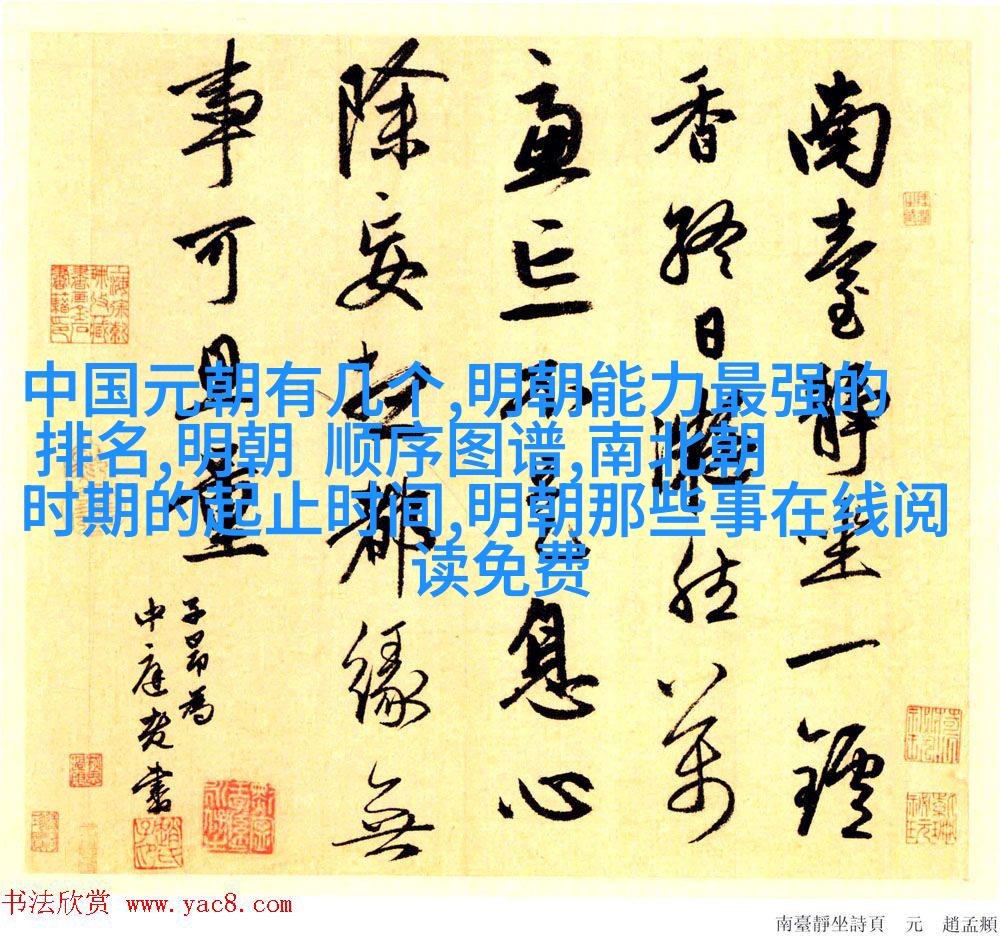 南臺靜坐一鑪
香終日凝然萬
慮亡不是息心
除妄想都緣無
事可思量
子昂為
中庭老書
中国元朝有几个,明朝能力最强的
排名,明朝 顺序图谱,南北朝
时期的起止时间,明朝那些事在线阅
读免费
书法欣赏 www.yac8.com
南臺靜坐詩頁 元 趙孟頫